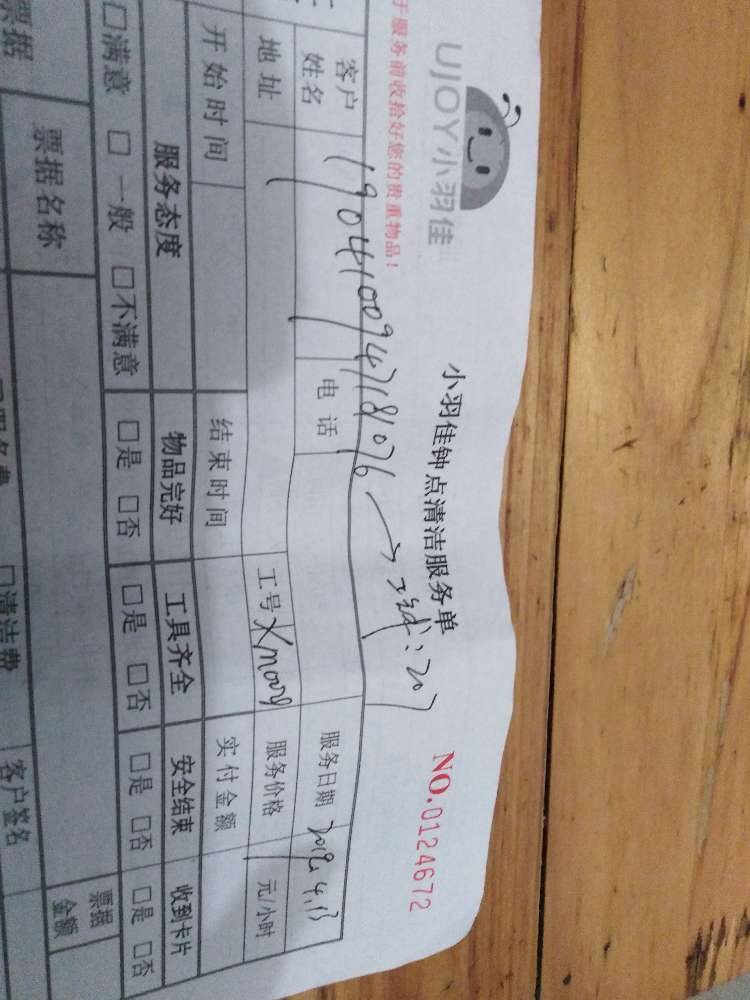 UJOY小羽佳
小羽佳钟点清洁服务单
NO.0124672
于服务前收拾好您的贵重物品！
1904100947181076
客户姓名
电话
服务日期 2019.4.13
地址
工号 Xm009
服务价格
元/小时
开始时间
结束时间
实付金额
服务态度
物品完好
工具齐全
安全结束
收到卡片
□满意 □一般 □不满意
□是 □否
□是 □否
□是 □否
□是 □否
票据
票据名称
票据金额
□清洁费
客户签名